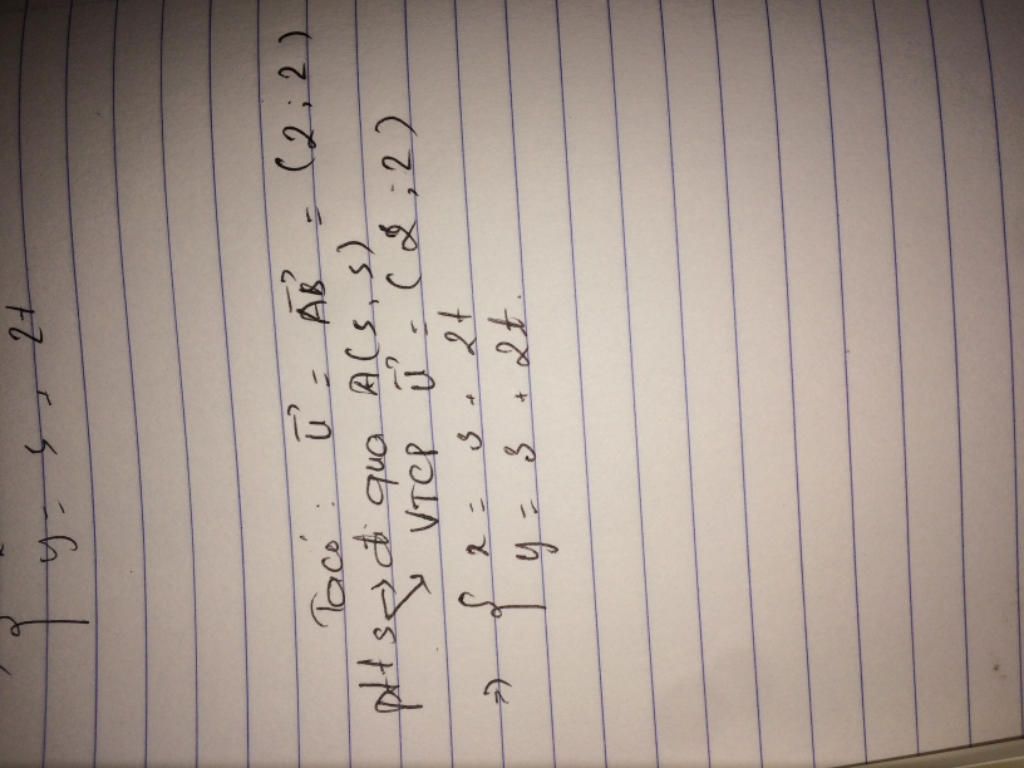 { y = 5 + 2t
Ta có : U = AB = (2 ; 2)
pt ts → đi qua A(3 ; 3)
↘ VTCP U = (2 ; 2)
=> { x = 3 + 2t
y = 3 + 2t.